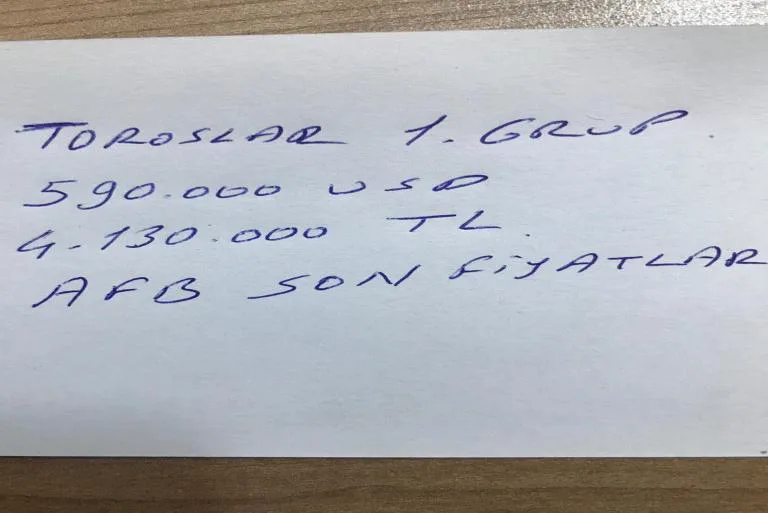 TOROSLAR 1. GRUP.
590.000 USD
4.130.000 TL.
AFB SON FiYATLAR